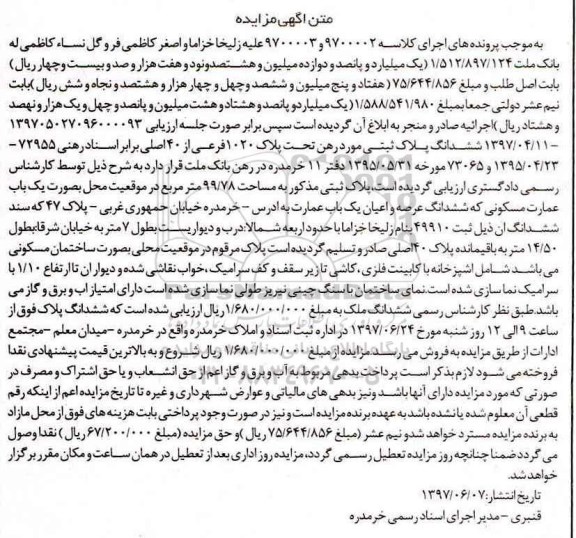 متن آگهی مزایده
به موجب پرونده های اجرای کلاسه ۹۷۰۰۰۰۲ و ۹۷۰۰۰۰۳ علیه زلیخا خزاما و اصغر کاظمی فر و گل نساء کاظمی له
بانک ملت ۱/۵۱۲/۸۹۷/۱۲۴ (یک میلیارد و پانصد و دوازده میلیون و هشتصد و نود و هفت هزار و صد و بیست و چهار ریال)
بابت اصل طلب و مبلغ ۷۵/۶۴۴/۸۵۶ (هفتاد و پنج میلیون و ششصد و چهل و چهار هزار و هشتصد و نجاه و شش ریال) بابت
نیم عشر دولتی جمعا بمبلغ ۱/۵۸۸/۵۴۱/۹۸۰ (یک میلیارد و پانصد و هشتاد و هشت میلیون و پانصد و چهل و یک هزار و نهصد
و هشتاد ریال) اجرائیه صادر و منجر به ابلاغ آن گردیده است سپس برابر صورت جلسه ارزیابی ۱۳۹۷۰۵۰۲۷۰۹۶۰۰۰۰۹۳
-۱۳۹۷/۰۴/۱۱ ششدانگ پلاک ثبتی مورد رهن تحت پلاک ۱۰۲۰ فرعی از ۴۰ اصلی برابر اسناد رهنی ۷۲۹۵۵-
۱۳۹۵/۰۴/۲۳ و ۷۳۰۶۵ مورخه ۱۳۹۵/۰۵/۳۱ دفتر ۱۱ خرمدره در رهن بانک ملت قرار دارد به شرح ذیل توسط کارشناس
رسمی دادگستری ارزیابی گردیده است. پلاک ثبتی مذکور به مساحت ۹۹/۷۸ متر مربع در موقعیت محل بصورت یک باب
عمارت مسکونی که ششدانگ عرصه و اعیان یک باب عمارت به ادرس - خرمدره خیابان جمهوری غربی - پلاک ۴۷ که سند
ششدانگ ان ذیل ثبت ۴۹۹۱۰ بنام زلیخا خزاما با حدود اربعه شمالا: درب و دیواریست بطول ۷ متر به خیابان شرقا بطول
۱۴/۵۰ متر به باقیمانده پلاک ۴۰ اصلی صادر و تسلیم گردیده است پلاک مرقوم در موقعیت محلی بصورت ساختمان مسکونی
می باشد شامل اشپزخانه با کابینت فلزی، کاشی تا زیر سقف و کف سرامیک، خواب نقاشی شده و دیوار ان تا ارتفاع ۱/۱۰ با
سرامیک نماسازی شده است. نمای ساختمان با سنگ چینی نیریز طولی نماسازی شده است دارای امتیاز اب و برق و گاز می
باشد. طبق نظر کارشناس رسمی ششدانگ ملک به مبلغ ۱/۶۸۰/۰۰۰/۰۰۰ ریال ارزیابی شده است که ششدانگ پلاک فوق از
ساعت ۹ الی ۱۲ روز شنبه مورخ ۱۳۹۷/۰۶/۲۴ در اداره ثبت اسناد و املاک خرمدره واقع در خرمدره - میدان معلم - مجتمع
ادارات از طریق مزایده به فروش می رسد. مزایده از مبلغ ۱/۶۸۰/۰۰۰/۰۰۰ ریال شروع و به بالاترین قیمت پیشنهادی نقدا
فروخته می شود لازم بذکر است پرداخت بدهی مربوط به آب و برق و گاز اعم از حق انشعاب و یا حق اشتراک و مصرف در
صورتی که مورد مزایده دارای آنها باشد و نیز بدهی های مالیاتی و عوارض شهرداری و غیره تا تاریخ مزایده اعم از اینکه رقم
قطعی آن معلوم شده یا نشده باشد به عهده برنده مزایده است و نیز در صورت وجود پرداختی بابت هزینه های فوق از محل مازاد
به برنده مزایده مسترد خواهد شد و نیم عشر (مبلغ ۷۵/۶۴۴/۸۵۶ ریال) و حق مزایده (مبلغ ۶۷/۲۰۰/۰۰۰ ریال) نقدا وصول
می گردد ضمنا چنانچه روز مزایده تعطیل رسمی گردد، مزایده روز اداری بعد از تعطیل در همان ساعت و مکان مقرر برگزار
خواهد شد.
تاریخ انتشار: ۱۳۹۷/۰۶/۰۷
قنبری - مدیر اجرای اسناد رسمی خرمدره